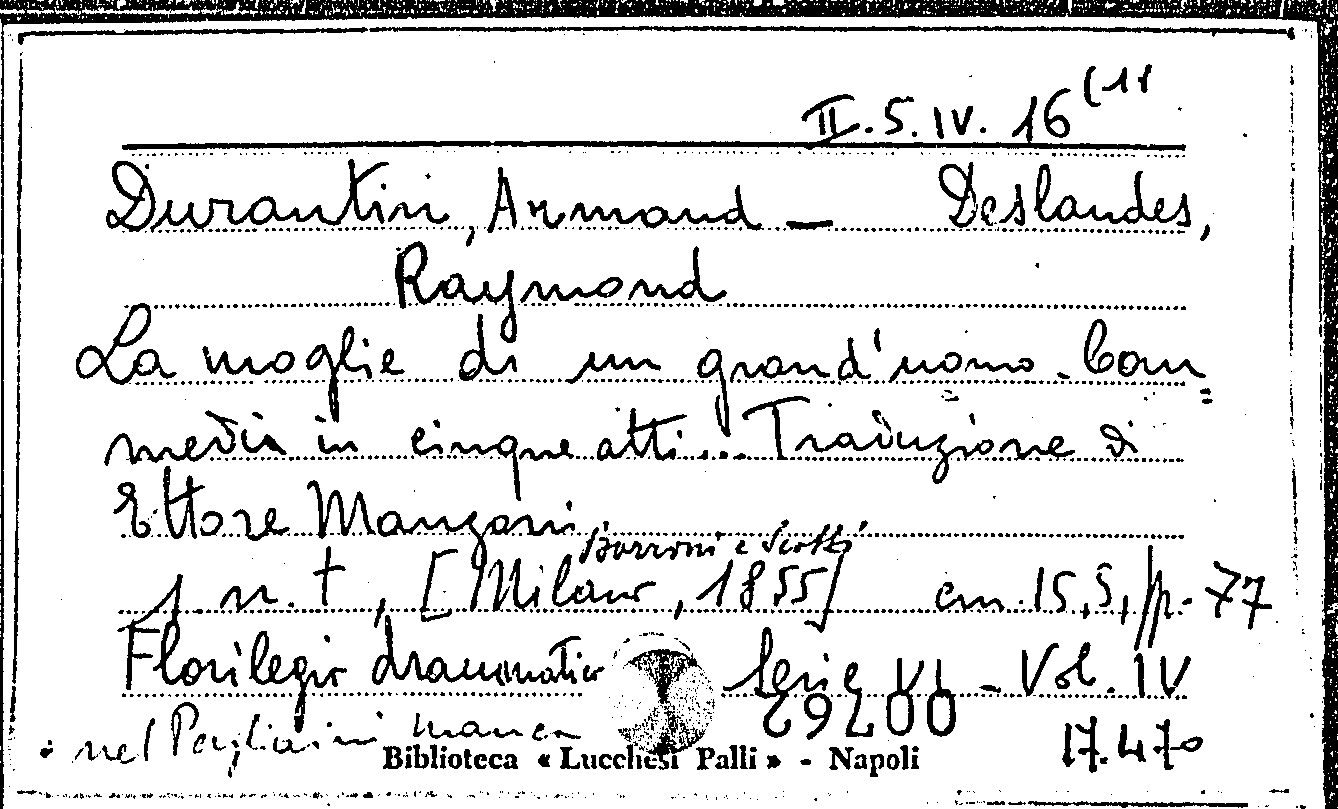 II.5.IV. 16(11
Durantin, Armand — Deslandes,
Raymond
La moglie di un grand'uomo. Com=
media in cinque atti... Traduzione di
Ettore Manzoni
Borroni e Scotti
s. n. t, [Milano, 1855] cm. 15,5, p. 77
Florilegio drammatico Serie VI - Vol. IV
nel Pagliaini manca
00762
17.470
Biblioteca « Lucchesi Palli » - Napoli